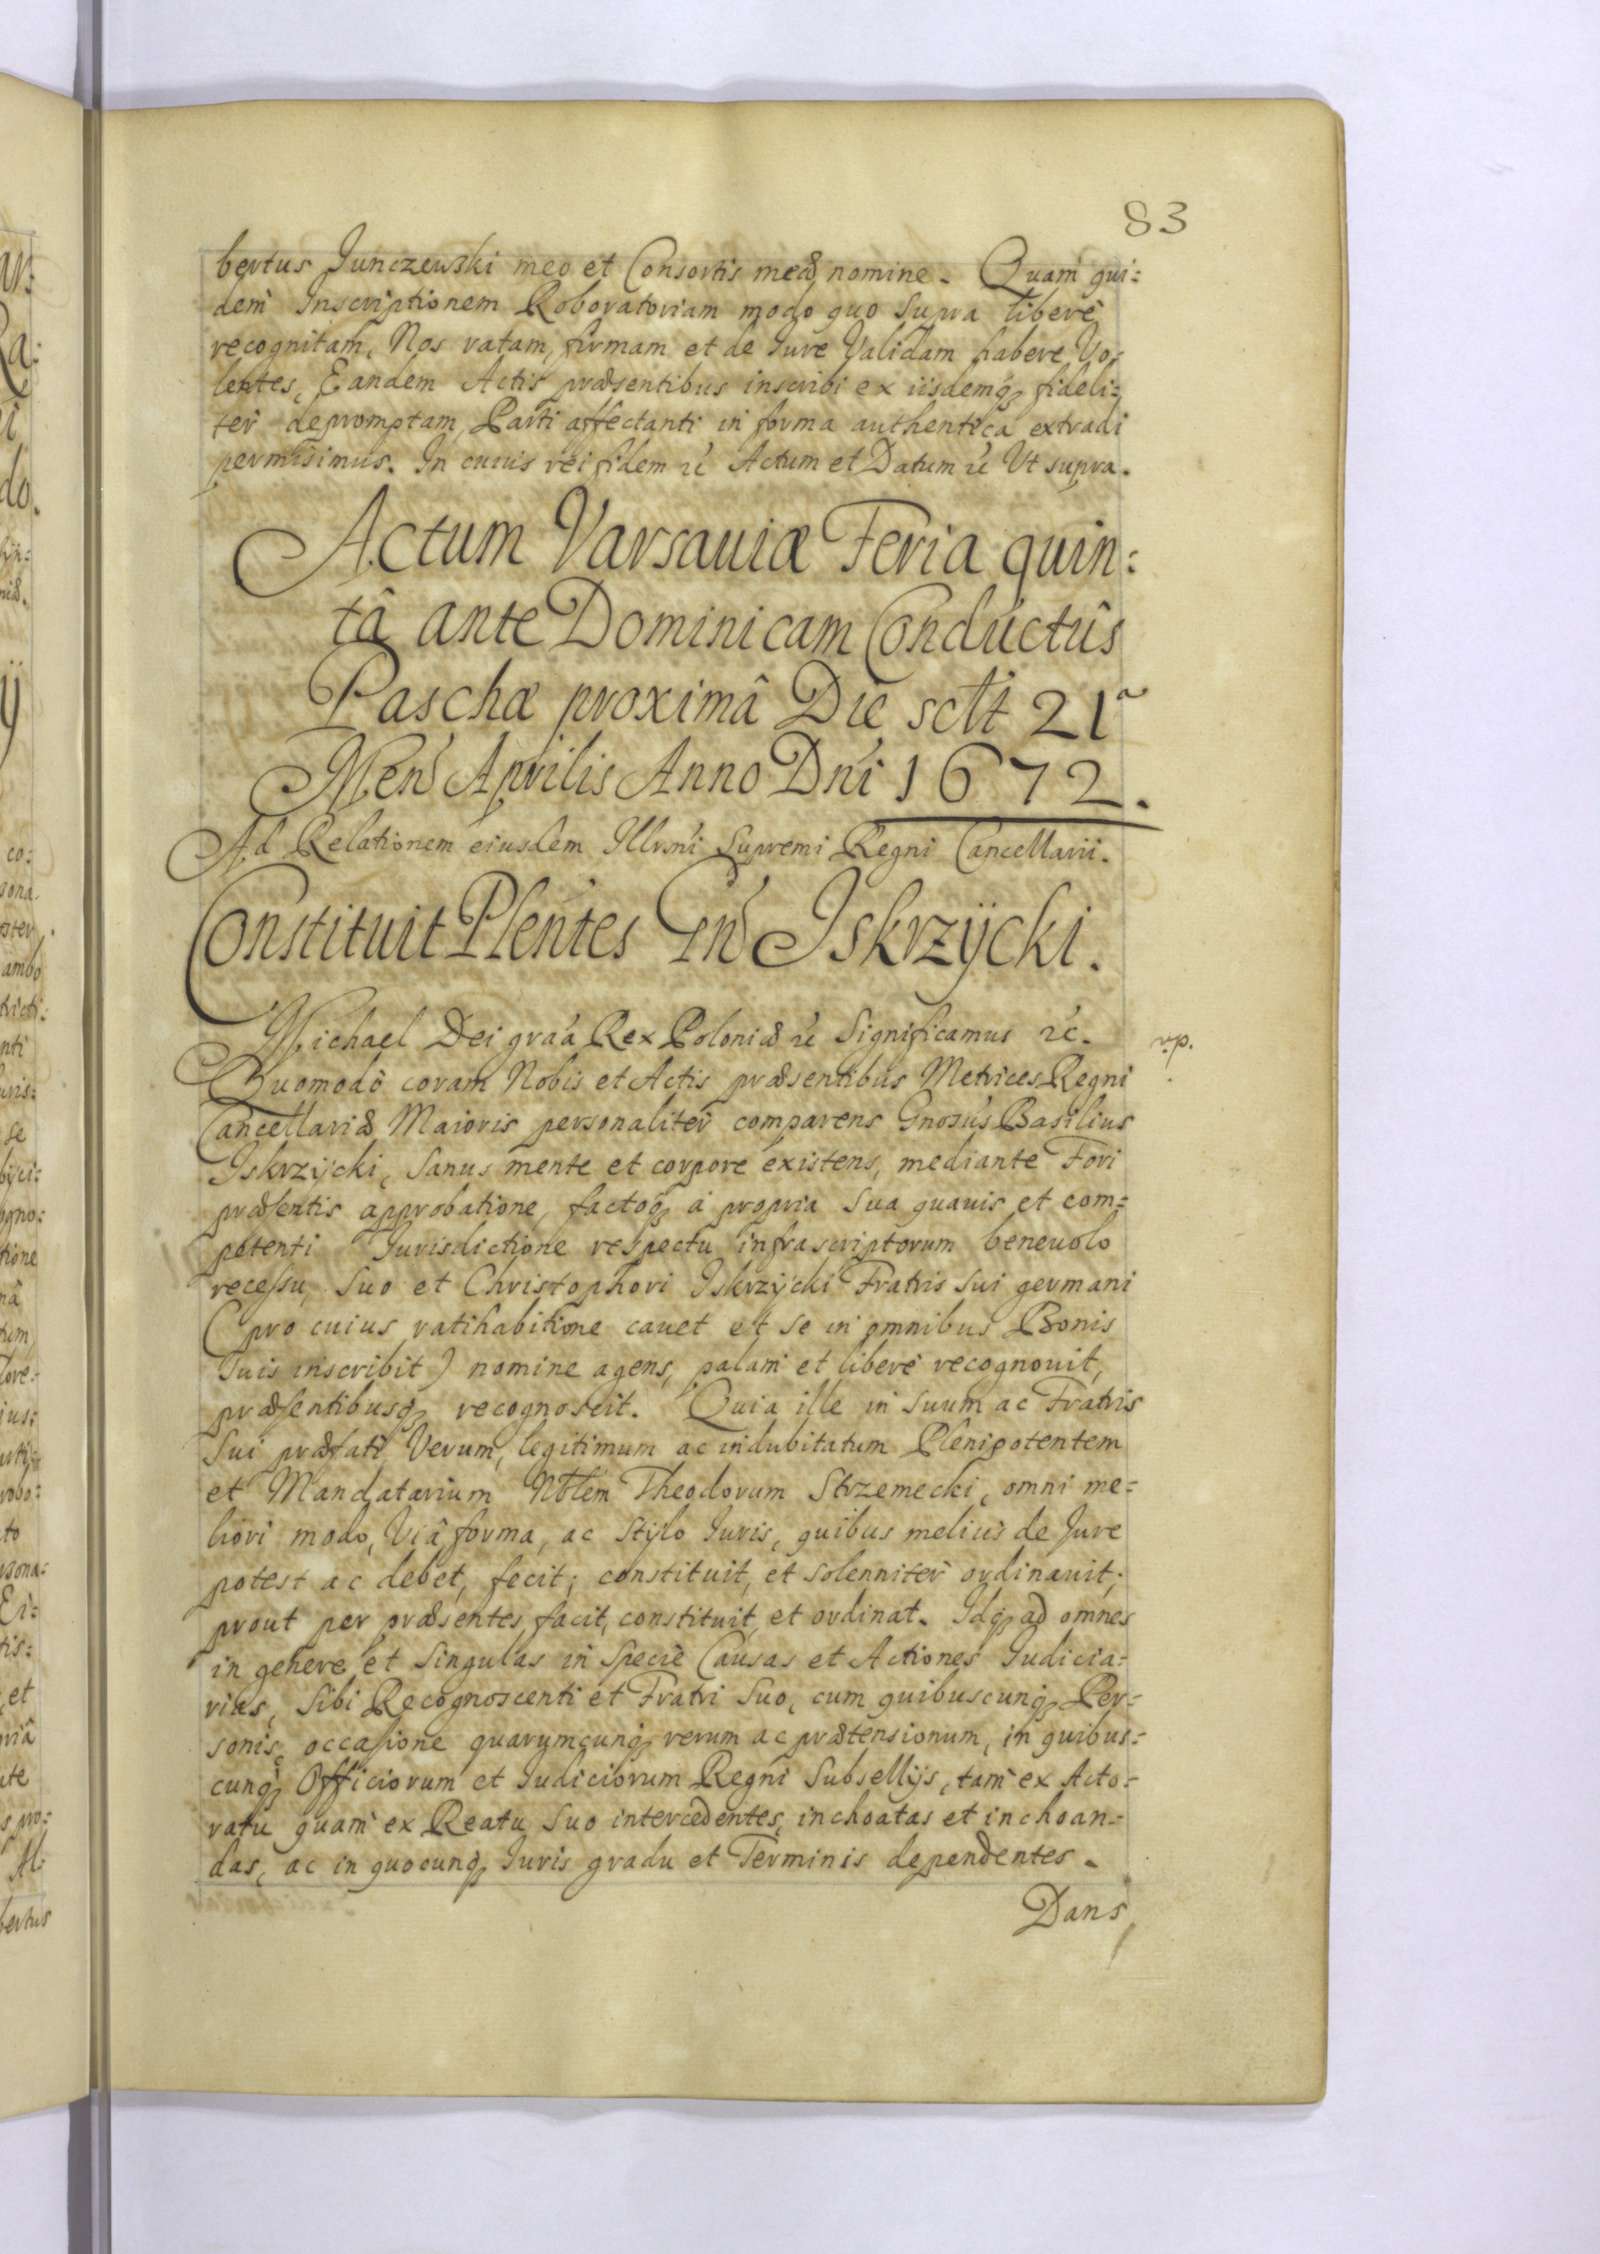 83
bertus Junczewski meo et Consortis meæ nomine. Quam qui:
dem Inscriptionem Roboratoriam modo quo supra liberè
recognitam, Nos ratam, firmam et de Iure Validam habere Vo:
lentes, Eandem Actis præsentibus inscribi ex iisdemq fideli:
ter depromptam, Parti affectanti in forma authentica extradi
permisimus. In cuius rei fidem &c Actum et Datum &c Ut supra.
Actum Varsauiæ Feria quin:
tâ ante Dominicam Conductûs
Paschæ proximâ Die sclt 21ª
Mens Aprilis Anno Dni 1672.
Ad Relationem eiusdem Illrmi Supremi Regni Cancellarii.
Constituit Plentes Gnd Iskrzÿcki.
Michael Dei graa Rex Poloniæ &c Significamus &c.
rp.
Quomodo coram Nobis et Actis præsentibus Metrices Regni
Cancellariæ Maioris personaliter comparens Gnosus Basilius
Iskrzÿcki, sanus mente et corpore existens, mediante Fori
præsentis approbatione, factoq à propria sua quauis et com=
petenti Iurisdictione respectu infrascriptorum beneuolo
recessu, suo et Christophori Iskrzÿcki Fratris sui germani
(pro cuius ratihabitione cauet et se in omnibus Bonis
suis inscribit) nomine agens, palam et liberè recognouit,
præsentibusq recognoscit. Quia ille in suum ac Fratris
sui præfati Verum, legitimum ac indubitatum Plenipotentem
et Mandatarium Nblem Theodorum Strzemecki, omni me=
liori modo, Viâ, forma, ac stÿlo Iuris, quibus melius de Jure
potest ac debet, fecit, constituit, et solenniter ordinauit,
prout per præsentes facit, constituit et ordinat. Idq ad omnes
in genere et singulas in specie Causas et Actiones Iudicia=
rias, sibi Recognoscenti et Fratri suo, cum quibuscunq Per=
sonis, occasione quarumcunq rerum ac prætensionum, in quibus=
cunq Officiorum et Iudiciorum Regni Subsellijs, tam ex Acto=
ratu quam ex Reatu suo intercedentes, inchoatas et inchoan=
das, ac in quocunq Iuris gradu et Terminis dependentes.
Dans